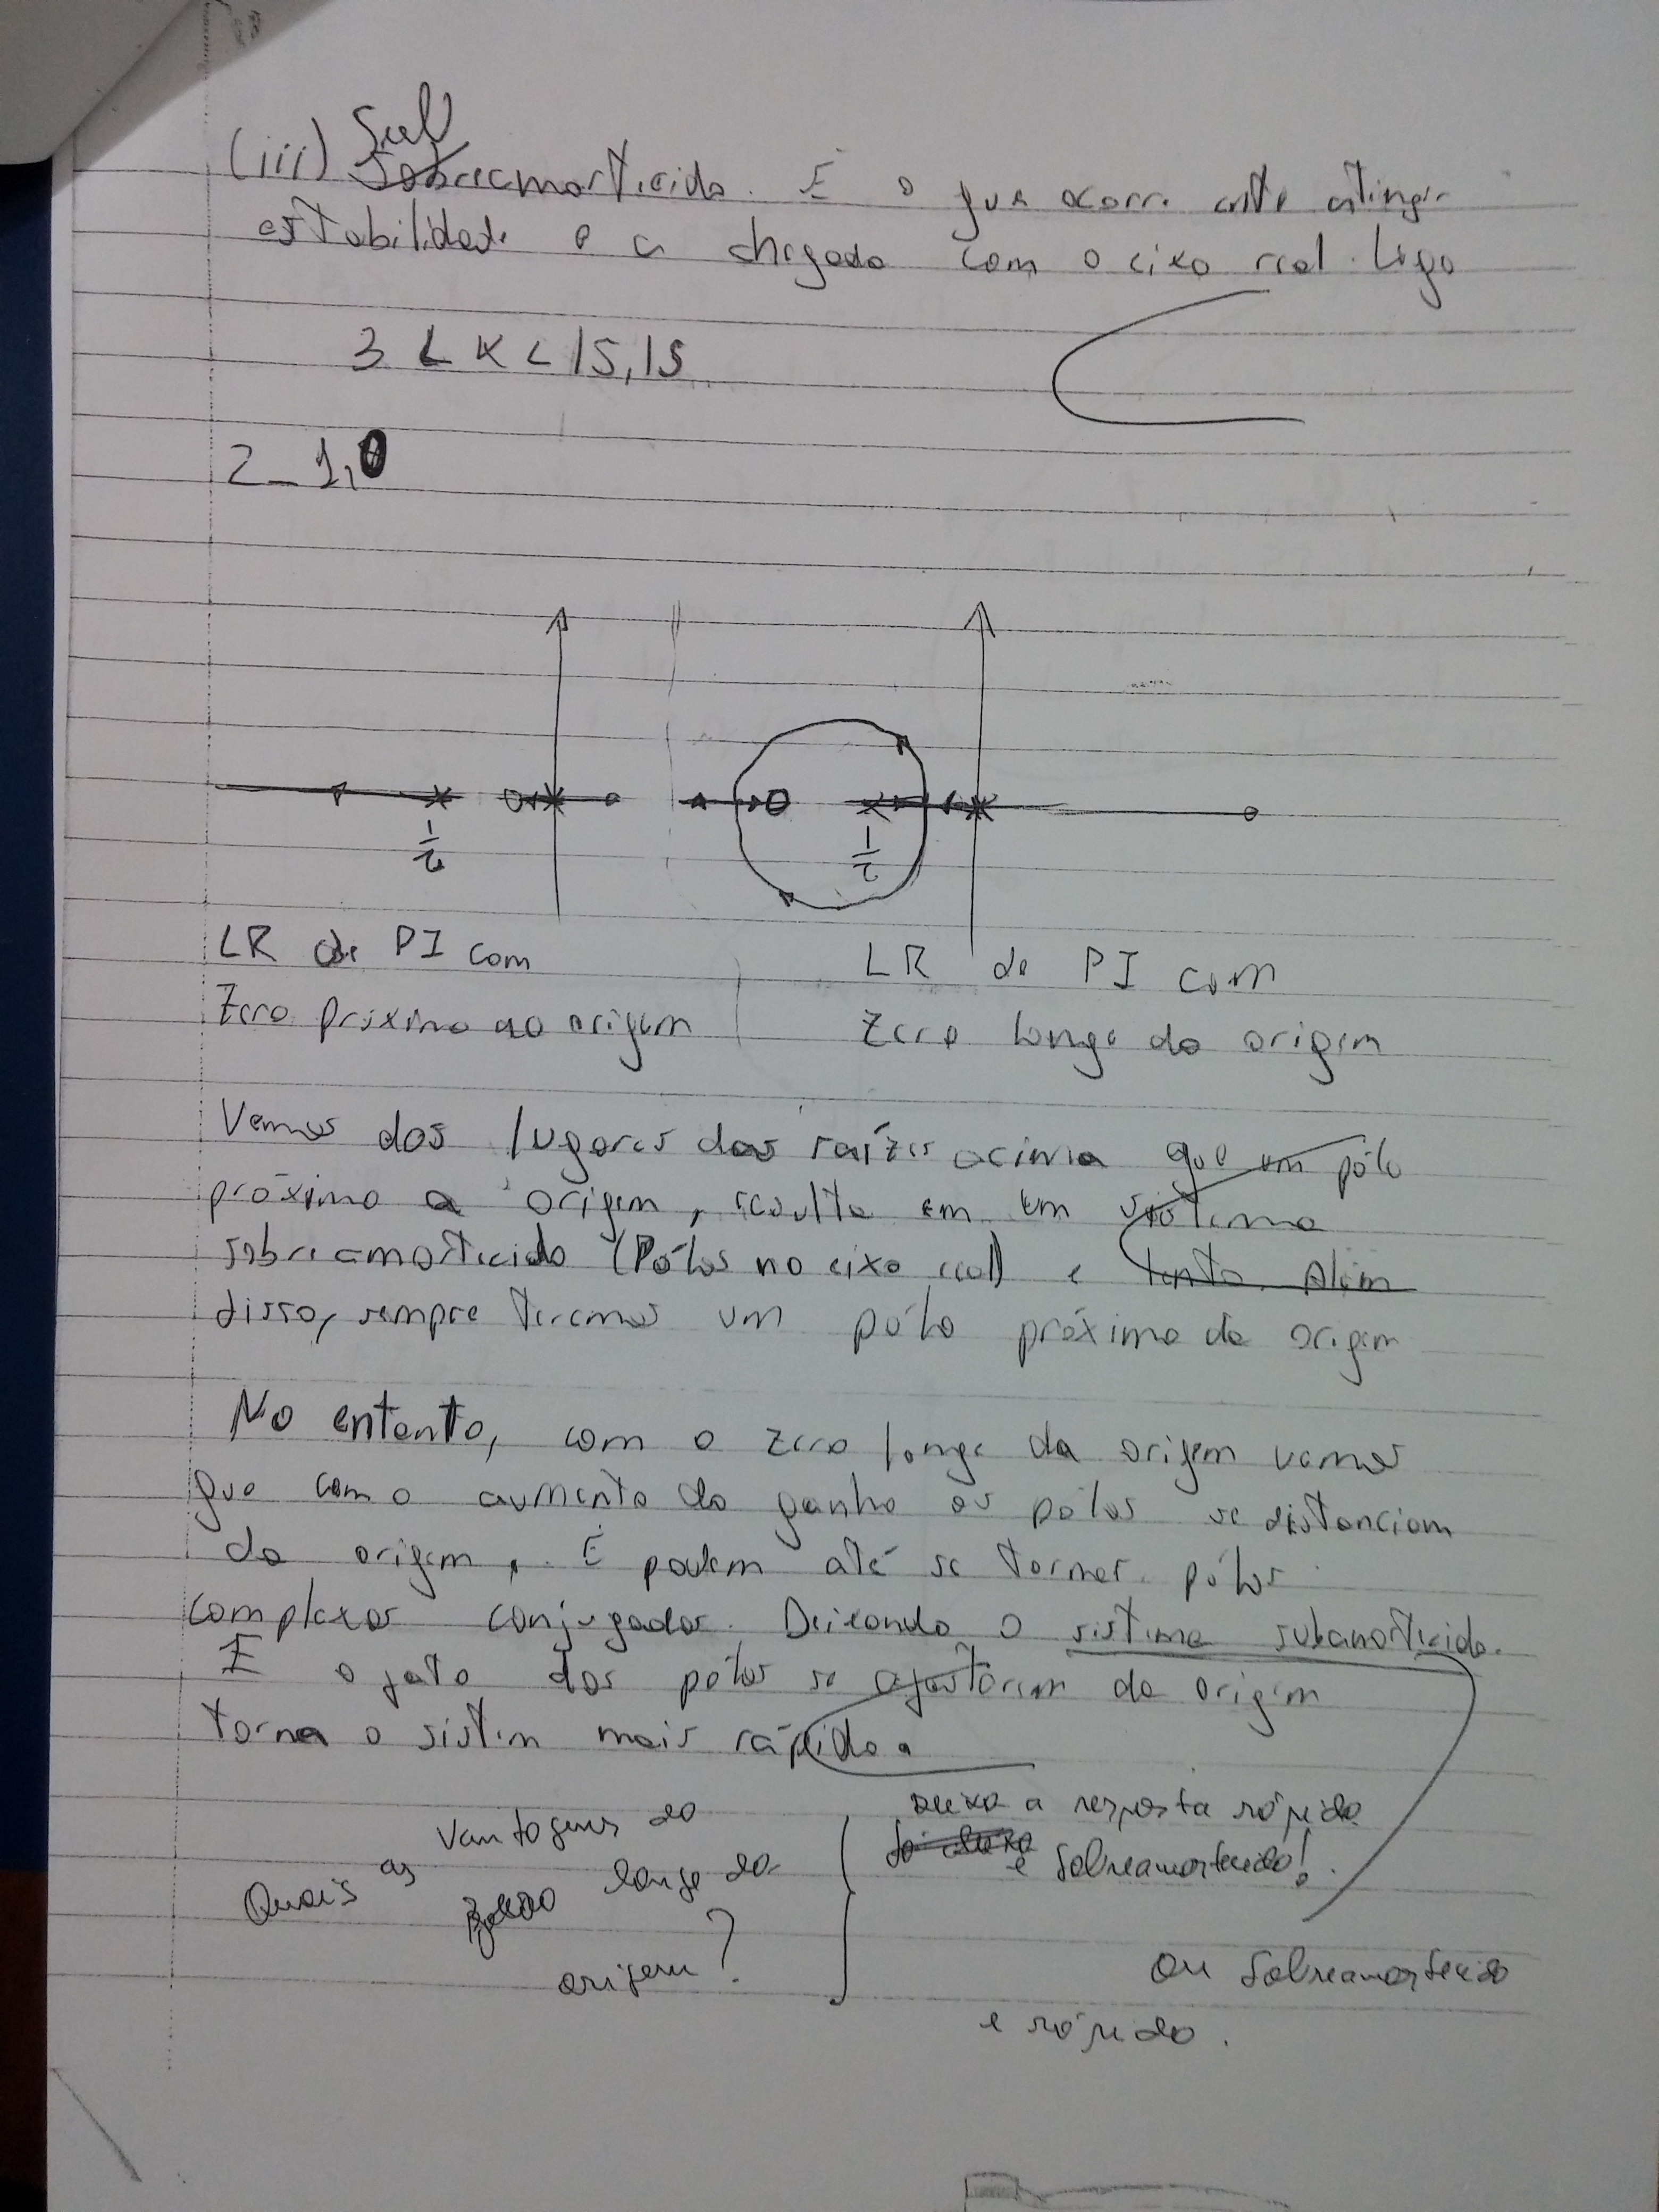 (iii) Sub
Sobreamortecido. É o que ocorre ante atingir
estabilidade e a chegada com o eixo real. Logo
3 < K < 15,15
2_ 1,0
1/τ
1/τ
LR de PI com
Zero próximo ao origem
LR de PI com
Zero longe da origem
Vemos dos lugares das raízes acima que um pólo
próximo a origem, resulta em um sistema
sobreamortecido (Pólos no eixo real) e lento. Além
disso, sempre teremos um pólo próximo da origem
No entanto, com o zero longe da origem vemos
que com o aumento do ganho os pólos se distanciam
da origem, E podem até se tornar pólos
complexos conjugados. Deixando o sistema subamortecido.
E o fato dos pólos se afastarem da origem
torna o sistem mais rápido.
Quais as vantagens do
zero longe da
origem?
deixa a resposta rápida
e sobreamortecida!
ou sobreamortecido
e rápido.